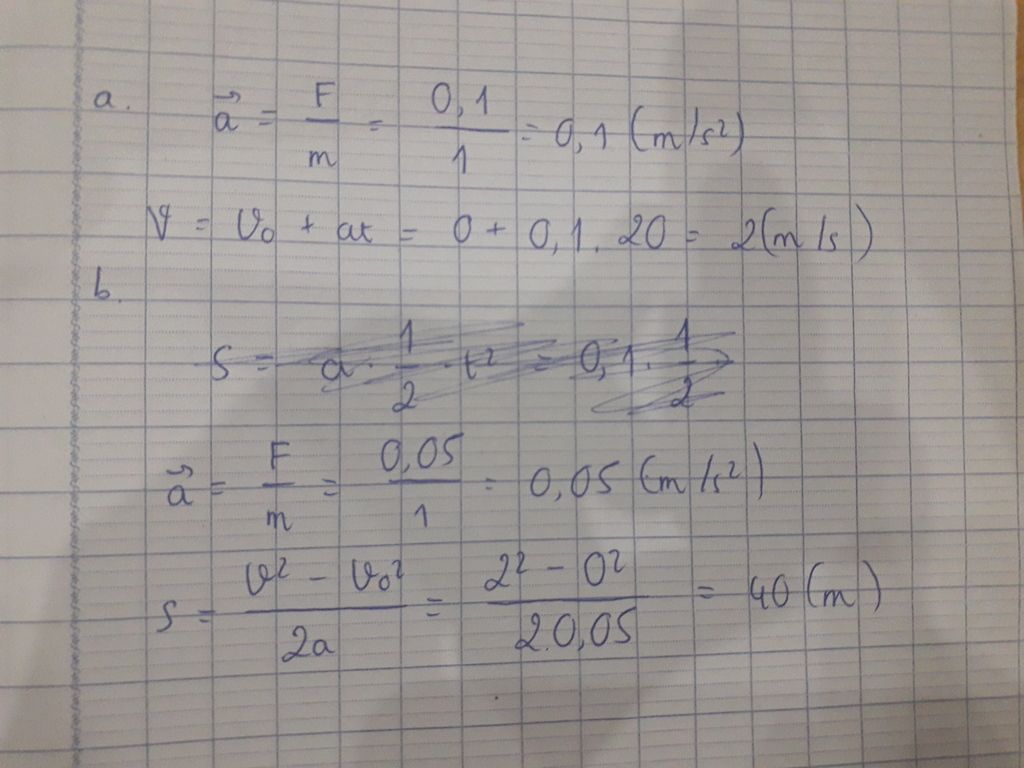 a. \vec{a} = F/m = 0,1/1 = 0,1 (m/s²)
V = V₀ + at = 0 + 0,1. 20 = 2(m/s)
b.
S = a. 1/2 t² = 0,1. 1/2
\vec{a} = F/m = 0,05/1 = 0,05 (m/s²)
S = (V² - V₀²)/2a = (2² - 0²)/2.0,05 = 40 (m)